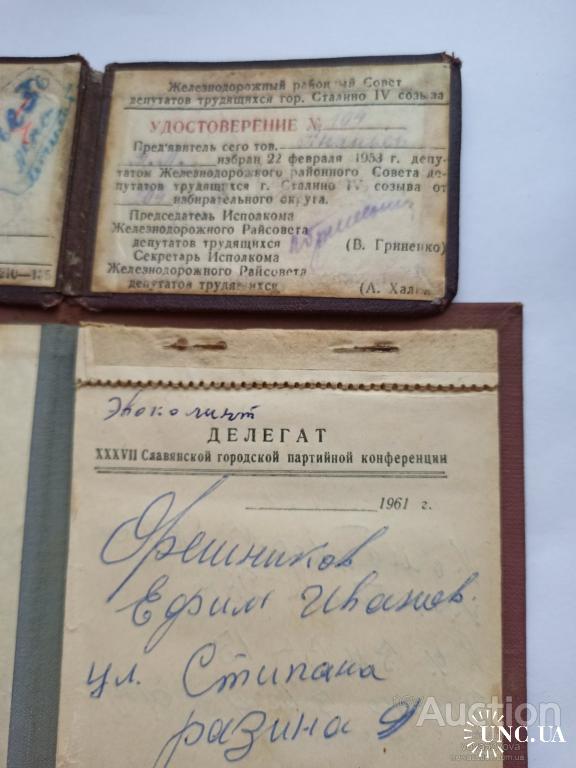 Железнодорожный районный Совет
депутатов трудящихся гор. Сталино IV созыва
УДОСТОВЕРЕНИЕ № 104
Пред'явитель сего тов.
избран 22 февраля 1953 г. депу-
татом Железнодорожного районного Совета де-
путатов трудящихся г. Сталино IV созыва от
избирательного округа.
Председатель Исполкома
Железнодорожного Райсовета
депутатов трудящихся (В. Гриненко)
Секретарь Исполкома
Железнодорожного Райсовета
депутатов трудящихся (А. Хал
ДЕЛЕГАТ
XXXVII Славянской городской партийной конференции
1961 г.
Орешников
Ефим Иванов.
ул. Стипана
разина
Auction
UNC.UA